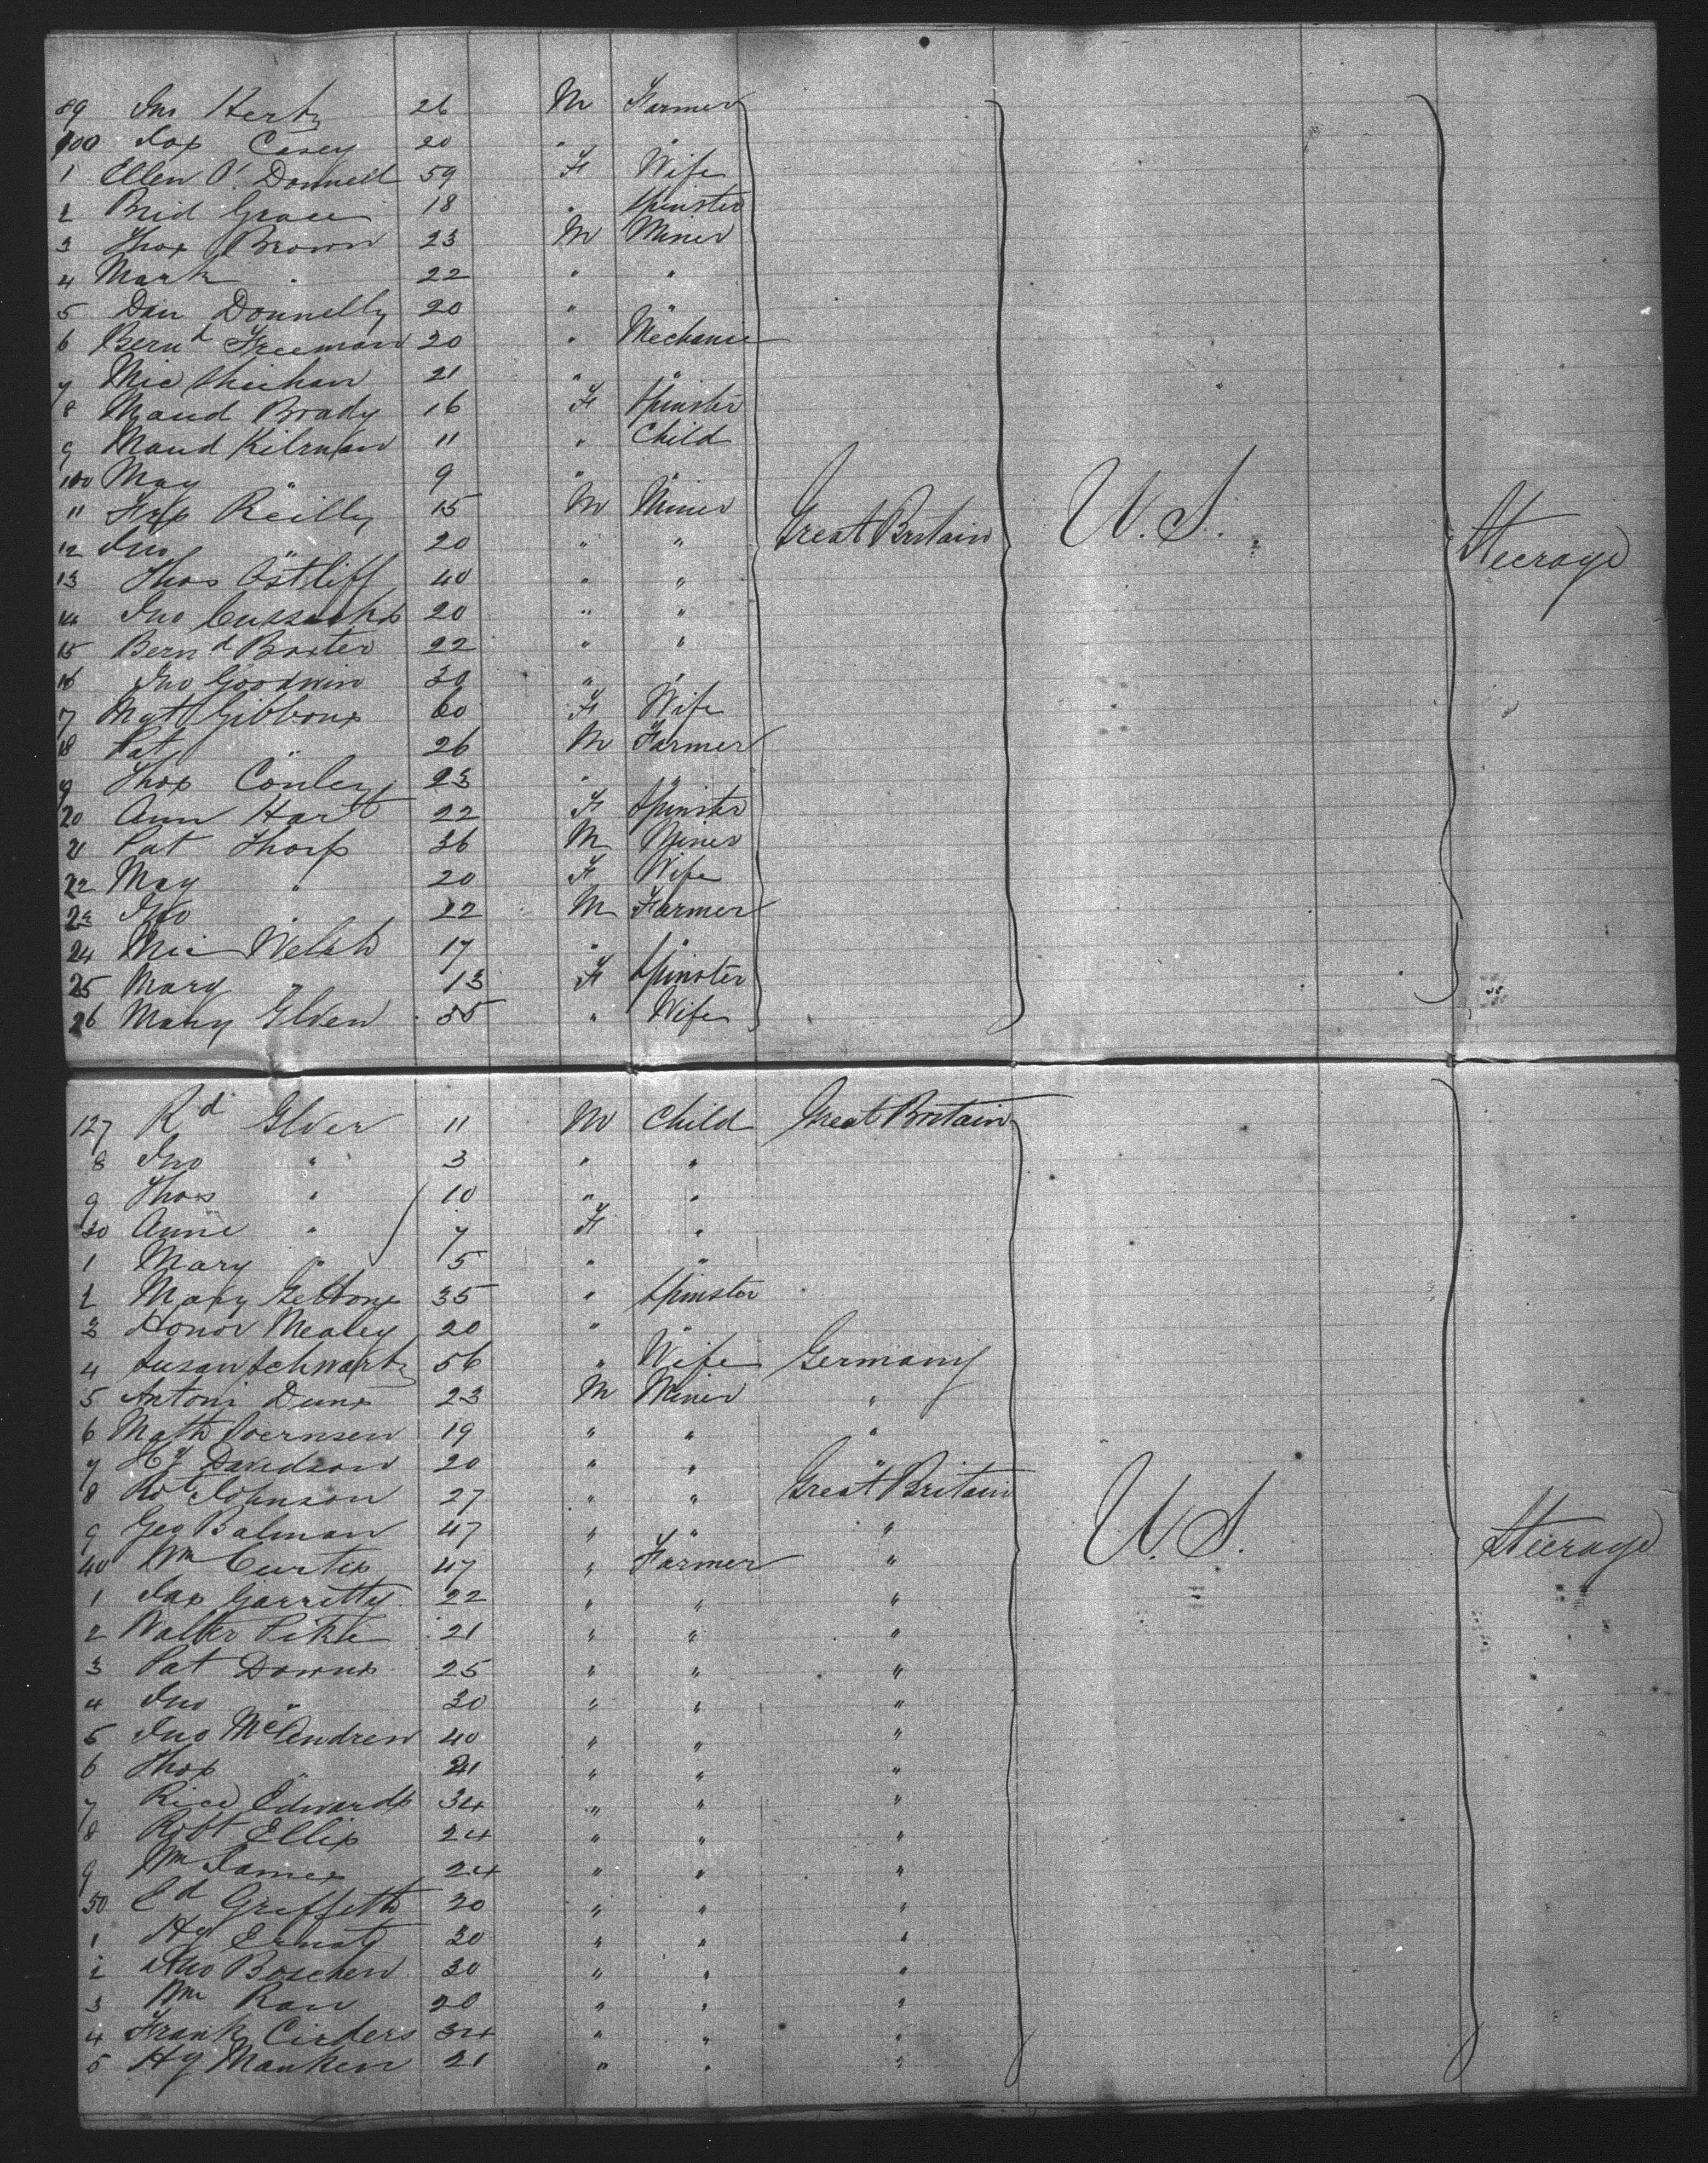 89 Jno Herty 26 M Farmer
100 Jas Casey 20 " "
1 Ellen O'Donnell 59 F Wife
2 Brid Grace 18 " Spinster
3 Thos Brown 23 M Miner
4 Mark " 22 " "
5 Dan Donnelly 20 " "
6 Bernd Freeman 20 " Mechanic
7 Mic Sheehan 21 " "
8 Maud Brady 16 F Spinster
9 Maud Kilrnan 11 " Child
100 May " 9 " "
11 Reilly 15 M Miner
12 Jno " 20 " "
13 Thos Ostliff 40 " "
14 Jno Cussacks 20 " "
15 Bernd Baxter 22 " "
16 Jno Goodwin 30 " "
7 Mgt Gibbons 60 F Wife
18 Pat " 26 M Farmer
9 Thos Conley 23 " "
20 Ann Hart 22 F Spinster
21 Pat Thorp 36 M Miner
22 May " 20 F Wife
23 Jno " 22 M Farmer
24 Mic Welsh 17 " "
25 Mary " 13 F Spinster
26 Mary Glven 35 " Wife
Great Britain U.S. Steerage
127 Rd Glver 11 M Child Great Britain
8 Jno " 3 " "
9 Thos " 10 " "
30 Anne " 7 F "
1 Mary " 5 " "
2 Mary 35 " Spinster
3 Honor Mealey 20 " "
4 Susan Schwartz 56 " Wife Germany
5 Antoni Duns 23 M Miner "
6 Math Soernsen 19 " " "
7 Hy Davidson 20 " " "
8 Rot Johnson 27 " " Great Britain
9 Geo Balman 47 " " "
40 Wm Curtis 47 " Farmer "
1 Jas Garritty 22 " " "
2 Walter Pike 21 " " "
3 Pat Downs 25 " " "
4 Jno " 30 " " "
5 Jno McAndrew 40 " " "
6 Thos " 21 " " "
7 Rice Edwards 34 " " "
8 Robt Ellis 24 " " "
9 Wm James 24 " " "
50 Ed Griffeth 20 " " "
1 Hy Ernst 30 " " "
2 Jno Boschen 30 " " "
3 Wm Rau 20 " " "
4 Frank Cirders 34 " " "
5 Hy Manken 21 " " "
U.S. Steerage